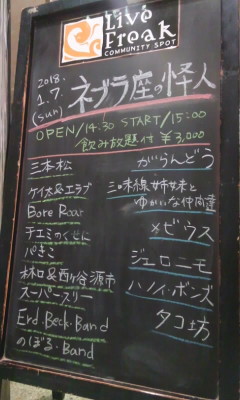 Live
Freak
COMMUNITY SPOT
2018.
1.7.
(sun)
ネブラ座の怪人
OPEN/14.30 START/15:00
飲み放題付 ¥3,000
三本松
ケイ太&エラブ
Bore Roar
チエミのくせに
パきこ
林口&西ヶ谷源市
スーパースリー
Erd.Beck.Band
のぼる.Band
がらんどう
三味線姉妹と
ゆかいな仲間達
メビウス
ジェロニモ
ハノイ・ボンズ
タコ坊